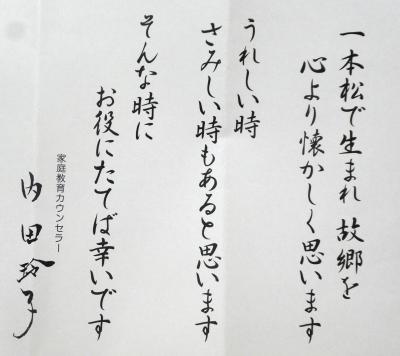 一本松で生まれ 故郷を
心より懐かしく思います
うれしい時
さみしい時もあると思います
そんな時に
お役にたてば幸いです
家庭教育カウンセラー
内田玲子